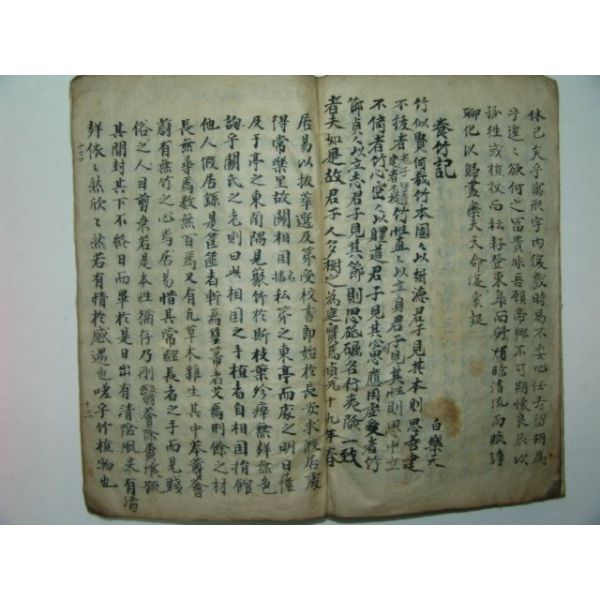 休已矣乎寓形宇内復幾時曷不委心任去留胡為
乎遑〻欲何之富貴非吾願帝鄉不可期懷良辰以
孤往或植杖而耘耔登東皐而舒嘯臨清流而賦詩
聊化以歸盡樂夫天命復奚疑
養竹記
白樂天
竹似賢何哉竹本固〻以樹德君子見其本則思善建
不拔者老子曰善建者不拔竹性直〻以立身君子見其性則思中立
不倚者竹心空〻以體道君子見其心思應用虛受者竹
節貞〻以立志君子見其節則思砥礪名行夷險一致
者夫如是故君子人多樹之為庭實焉貞元十九年春
居易以拔萃選及第受校書郎始於長安求假居處
得常樂里故關相國私第之東亭而處之明日屨
及于亭之東南隅見叢竹於斯枝葉殄瘁無聲無色
詢乎關氏之老則曰此相國之手植者自相國捐館
他人假居繇是筐篚者斬焉篲箒者刈焉刑餘之材
長無尋焉數無百焉又有凡草木雜生其中菶茸薈
蔚有無竹之心焉居易惜其常經長者之手而見賤
俗之人目剪棄若是本性猶存乃刪翳薈除糞壤疏
其間封其下不終日而畢於是日出有清陰風来有清
聲依〻然欣〻然若有情於感遇也嗟乎竹植物也